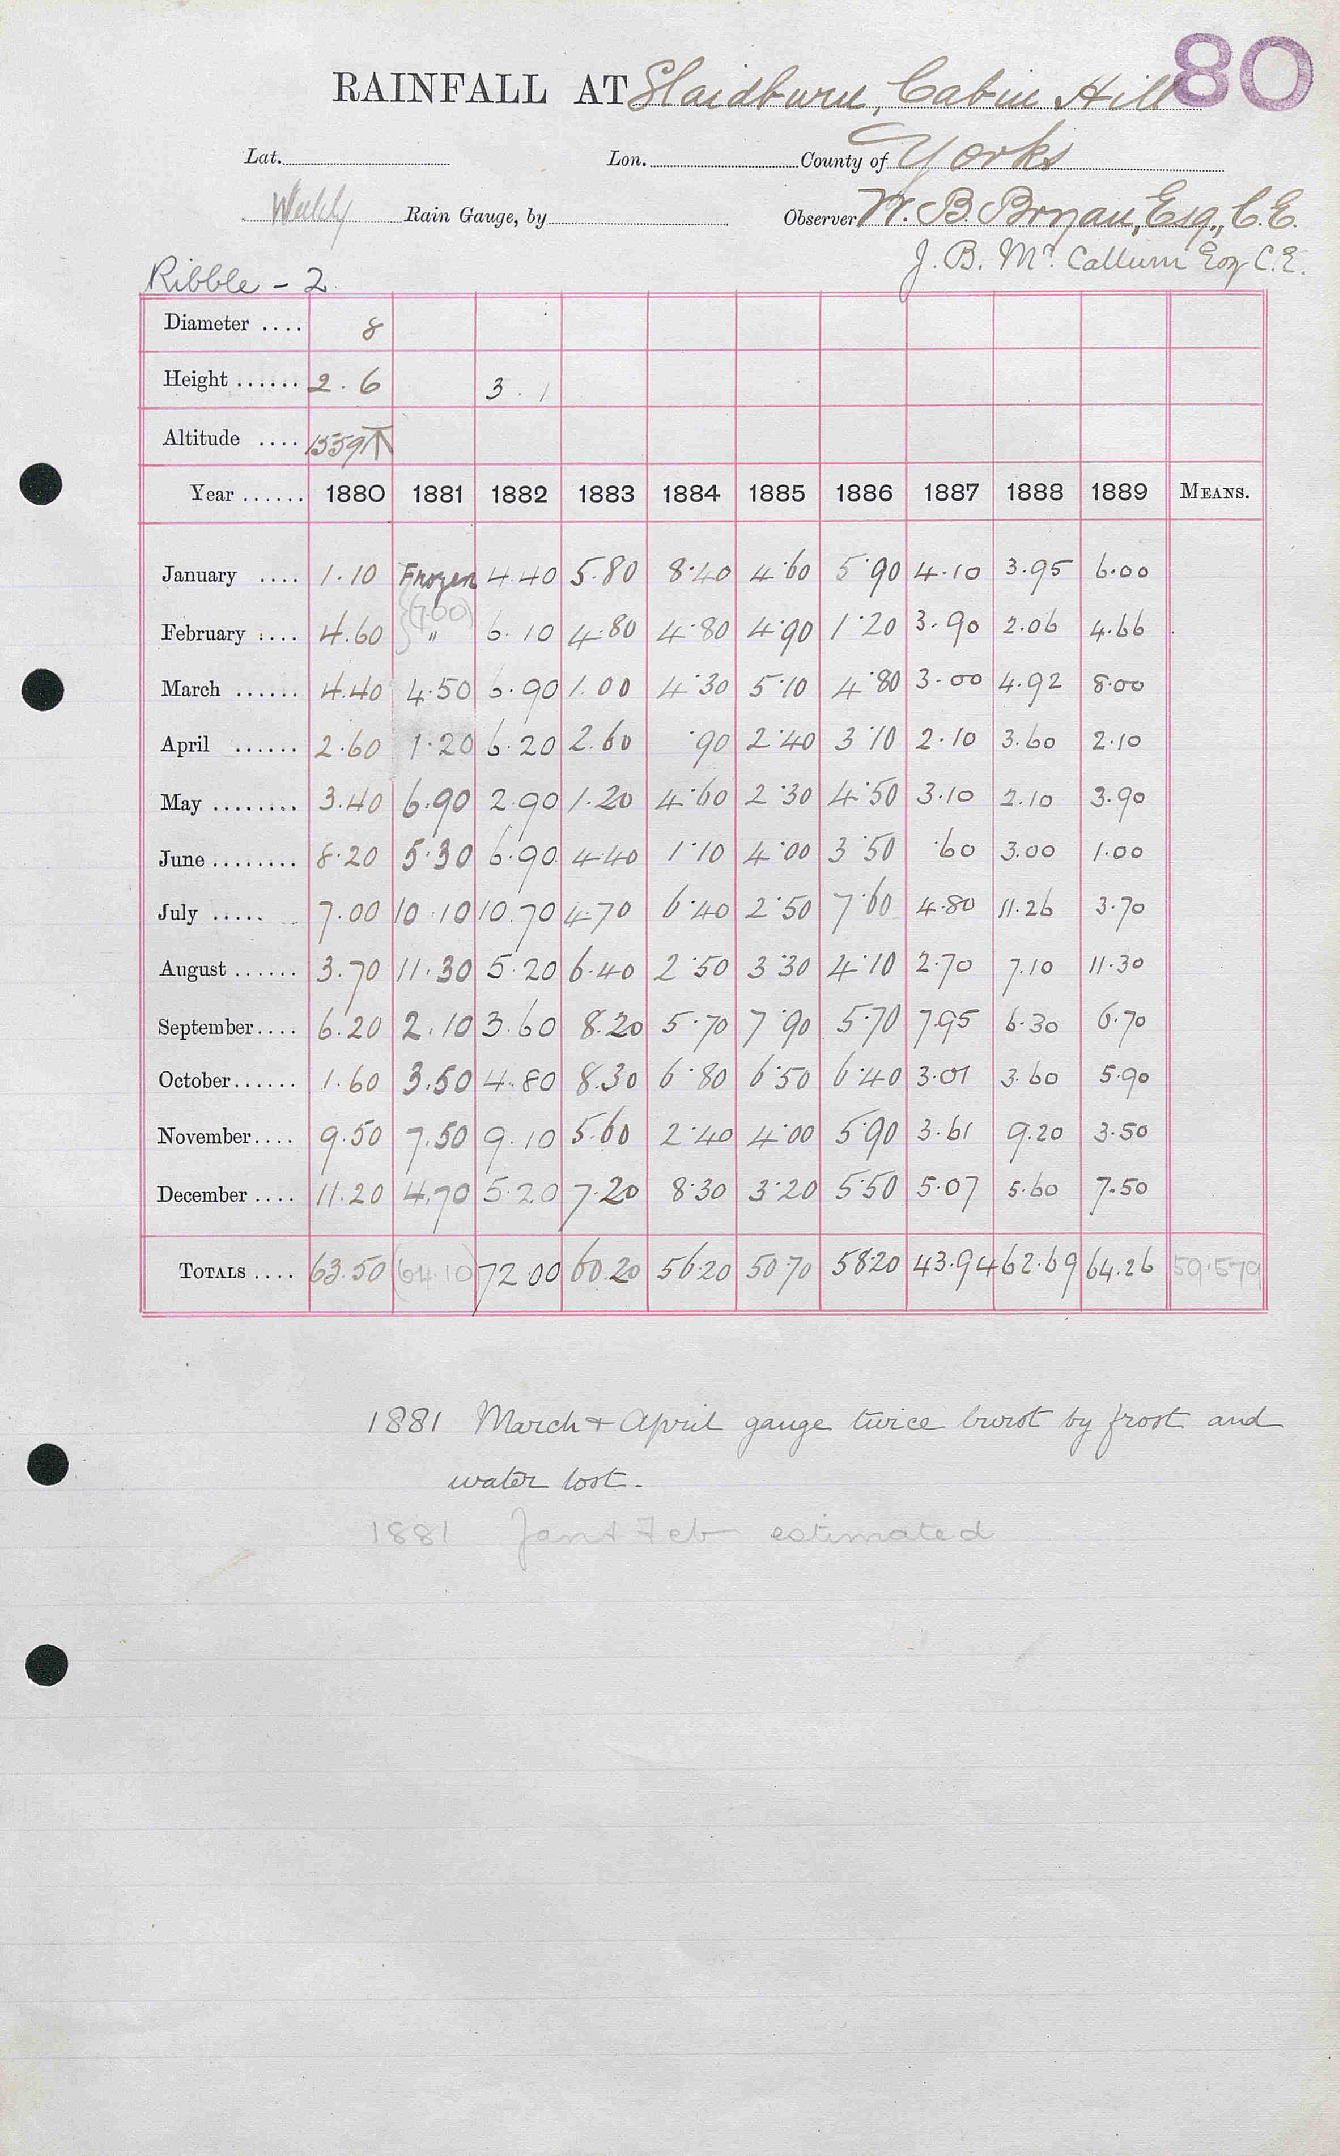 80
RAINFALL AT Slaidburn, Cabin Hill
Lat. Lon. County of Yorks
Weekly Rain Gauge, by Observer W. B. Bryan, Esq., C.E.
J. B. Mc. Callum Esq C.E.
Ribble - 2
Diameter .... 8
Height ...... 2.6 3.1
Altitude .... 1559
Year ...... 1880 1881 1882 1883 1884 1885 1886 1887 1888 1889 MEANS.
January .... 1.10 Frozen 4.40 5.80 8.40 4.60 5.90 4.10 3.95 6.00
(7.00)
February .... 4.60 " 6.10 4.80 4.80 4.90 1.20 3.90 2.06 4.66
March ...... 4.40 4.50 6.90 1.00 4.30 5.10 4.80 3.00 4.92 8.00
April ...... 2.60 1.20 6.20 2.60 .90 2.40 3.10 2.10 3.60 2.10
May ........ 3.40 6.90 2.90 1.20 4.60 2.30 4.50 3.10 2.10 3.90
June ........ 8.20 5.30 6.90 4.40 1.10 4.00 3.50 .60 3.00 1.00
July ..... 7.00 10.10 10.70 4.70 6.40 2.50 7.60 4.80 11.26 3.70
August ...... 3.70 11.30 5.20 6.40 2.50 3.30 4.10 2.70 7.10 11.30
September.... 6.20 2.10 3.60 8.20 5.70 7.90 5.70 7.95 6.30 6.70
October...... 1.60 3.50 4.80 8.30 6.80 6.50 6.40 3.01 3.60 5.90
November.... 9.50 7.50 9.10 5.60 2.40 4.00 5.90 3.61 9.20 3.50
December .... 11.20 4.70 5.20 7.20 8.30 3.20 5.50 5.07 5.60 7.50
TOTALS .... 63.50 (64.10) 72.00 60.20 56.20 50.70 58.20 43.94 62.69 64.26 59.579
1881 March + April gauge twice burst by frost and
water lost.
1881 Jan + Feb estimated